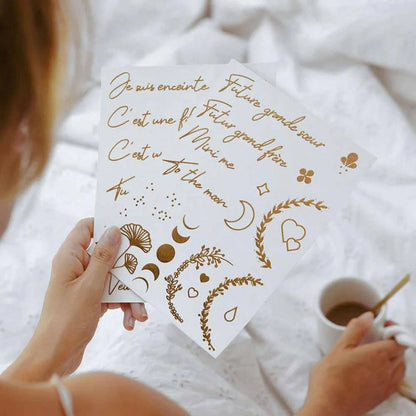 Je suis enceinte
C'est une f
C'est u
Fu
Future grande soeur
Futur grand frère
Mini me
To the moon